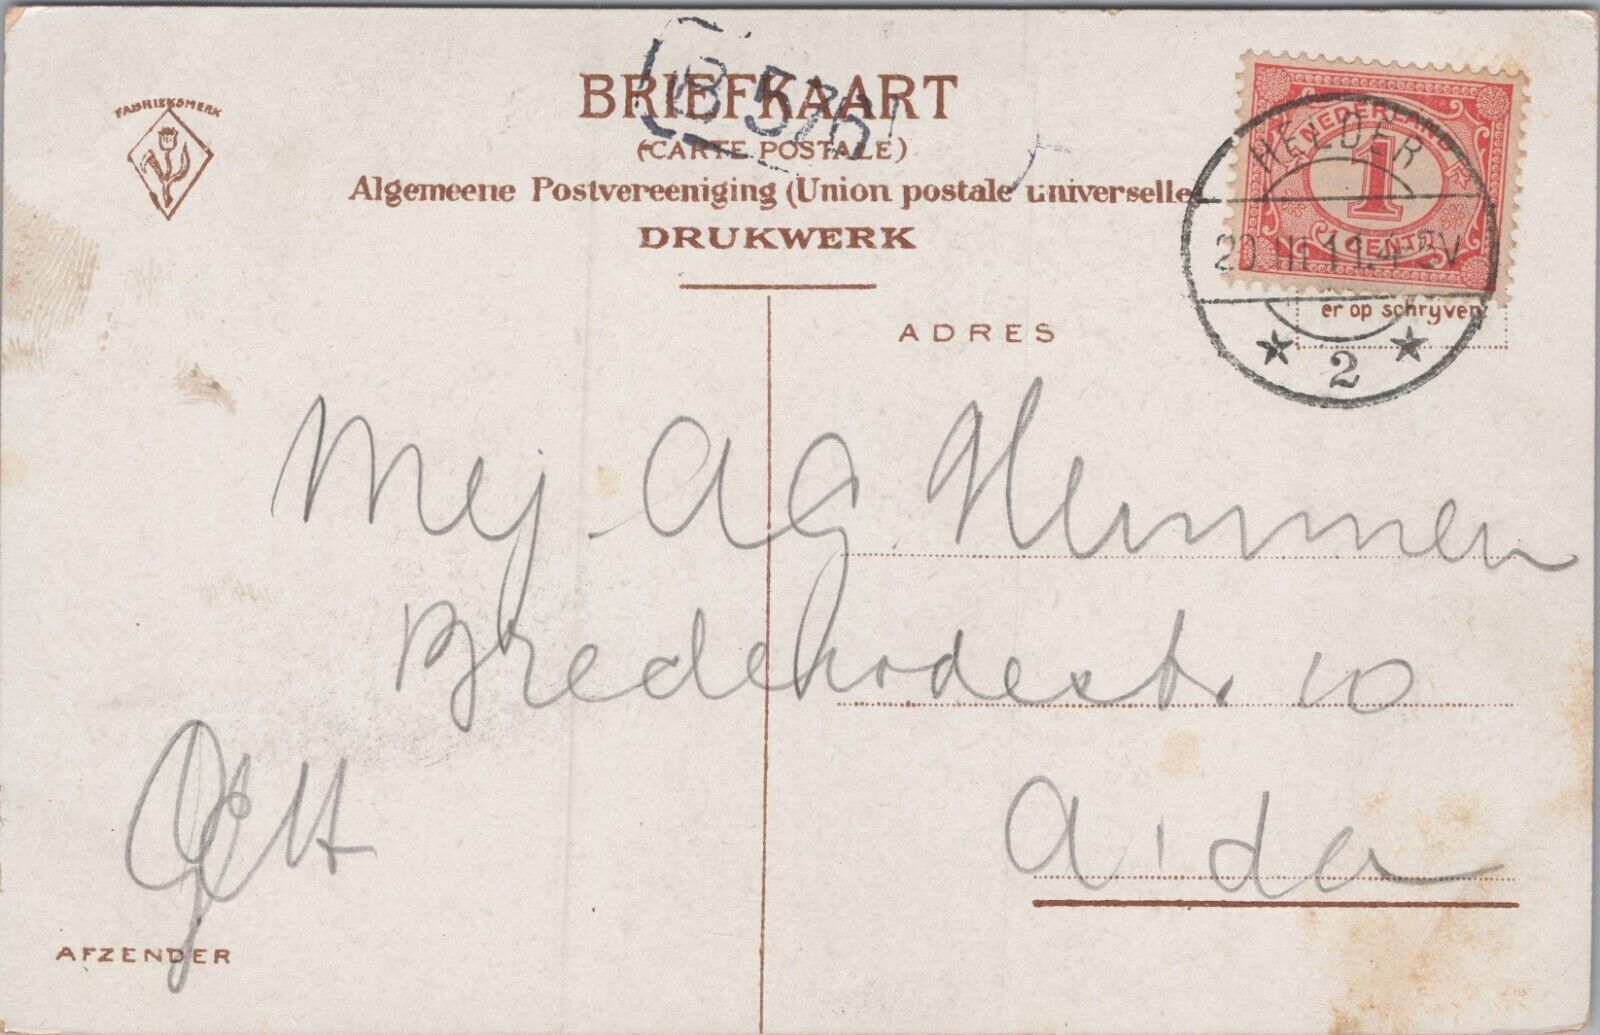 FABRIEKSMERK
BRIEFKAART
(CARTE POSTALE)
Algemeene Postvereeniging (Union postale universelle
DRUKWERK
B 576
NEDERLAND
1
CENT
HELDER
20 III 11.4-8V
2
er op schrijven.
ADRES
Mej. A G Hemmen
Brederodestr. 10
A'da
AFZENDER